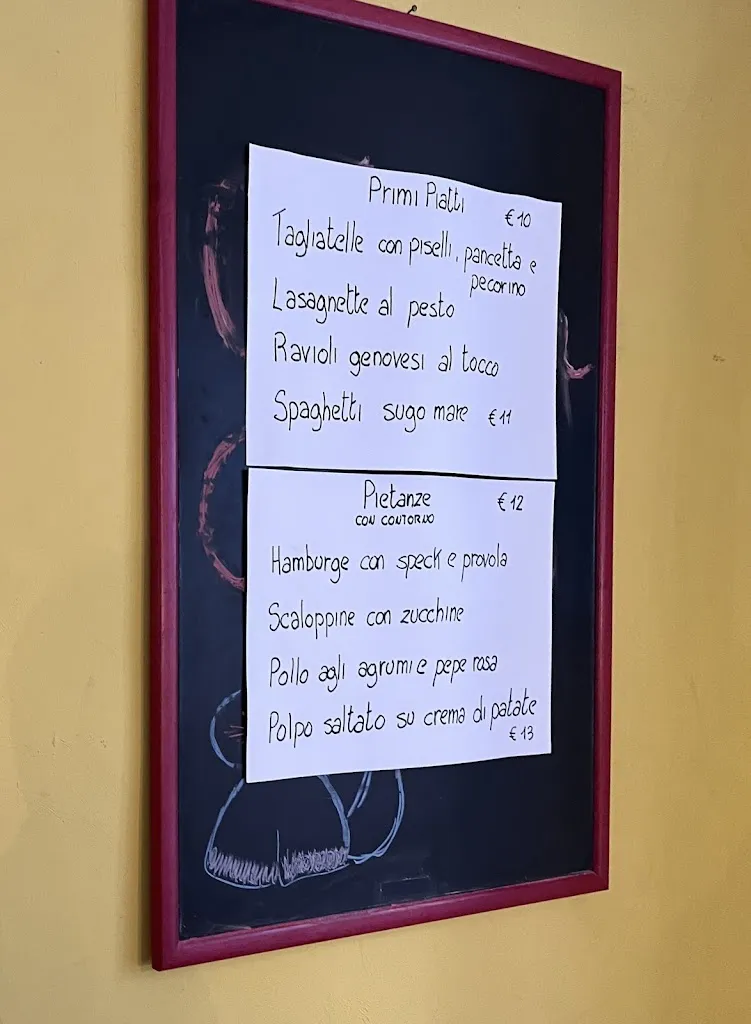 Primi Piatti € 10
Tagliatelle con piselli, pancetta e
pecorino
Lasagnette al pesto
Ravioli genovesi al tocco
Spaghetti sugo mare € 11
Pietanze € 12
CON CONTORNO
Hamburge con speck e provola
Scaloppine con zucchine
Pollo agli agrumi e pepe rosa
Polpo saltato su crema di patate
€ 13